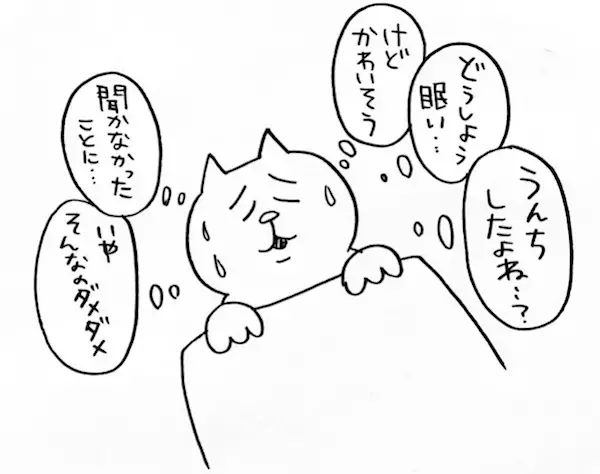 うんち
したよね…?
どうしよう
眠い…
けど
かわいそう
聞かなかった
ことに…
いや
そんなのダメダメ